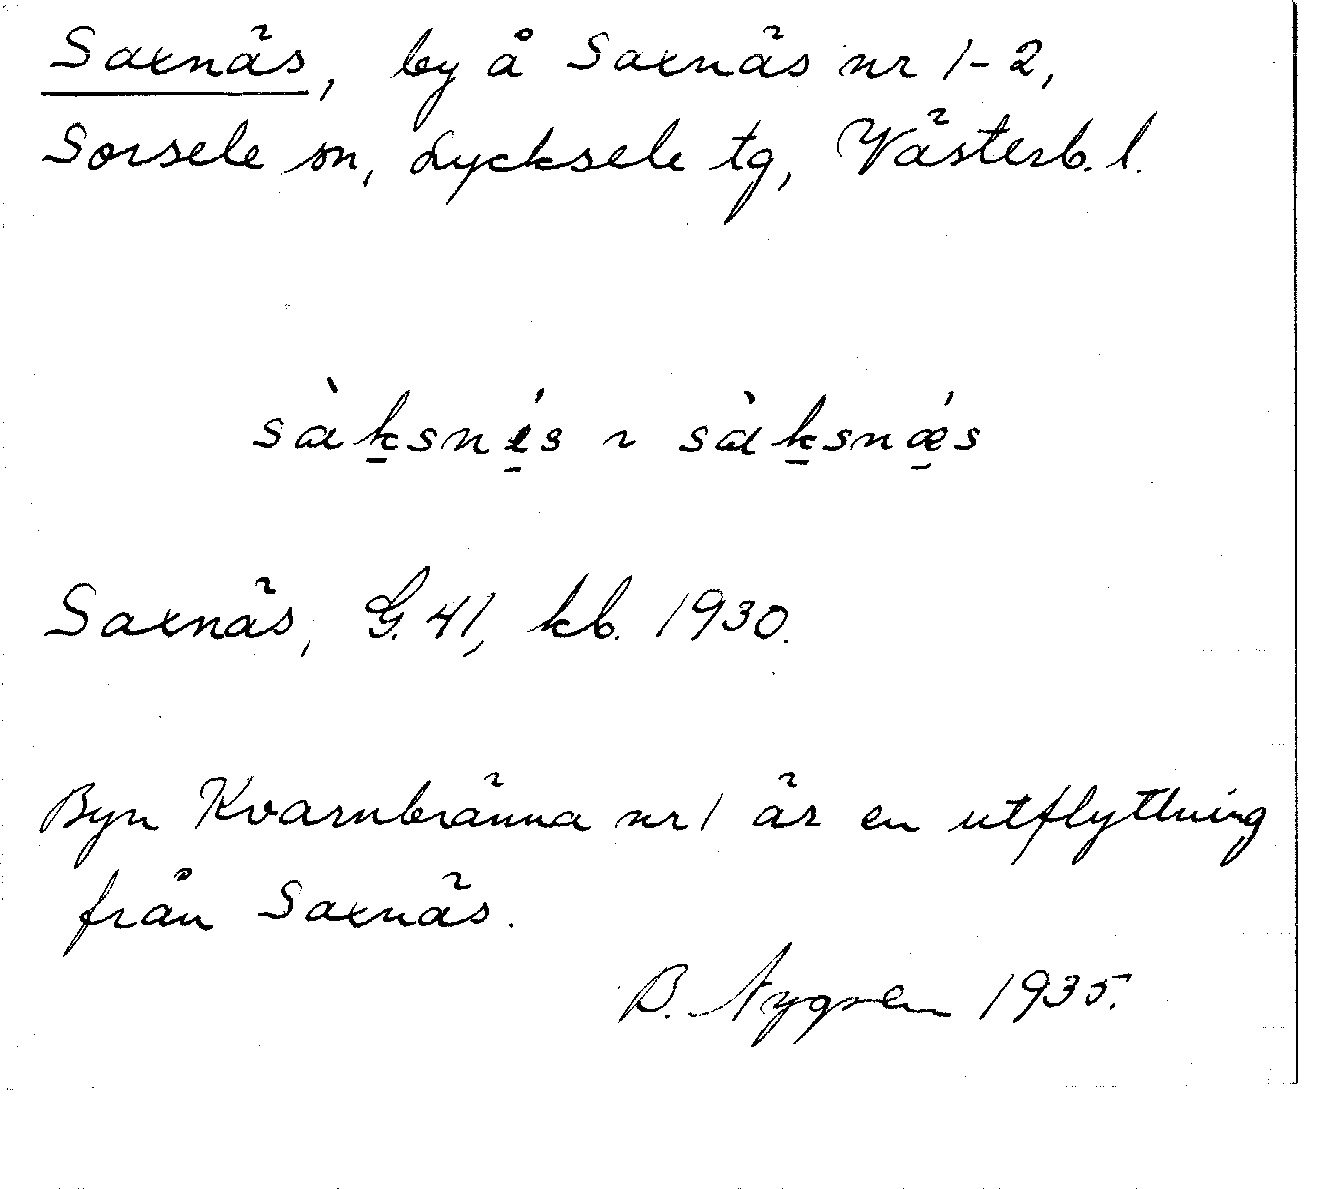 Saxnäs, by å Saxnäs nr 1-2,
Sorsele sn, Lycksele tg, Västerb. l.
sàk̠sné̠s ~ sàk̠snǽ̠s
Saxnäs, G. 41, kb. 1930.
Byn Kvarnbränna nr 1 är en utflyttning
från Saxnäs.
B. Nygren 1935.